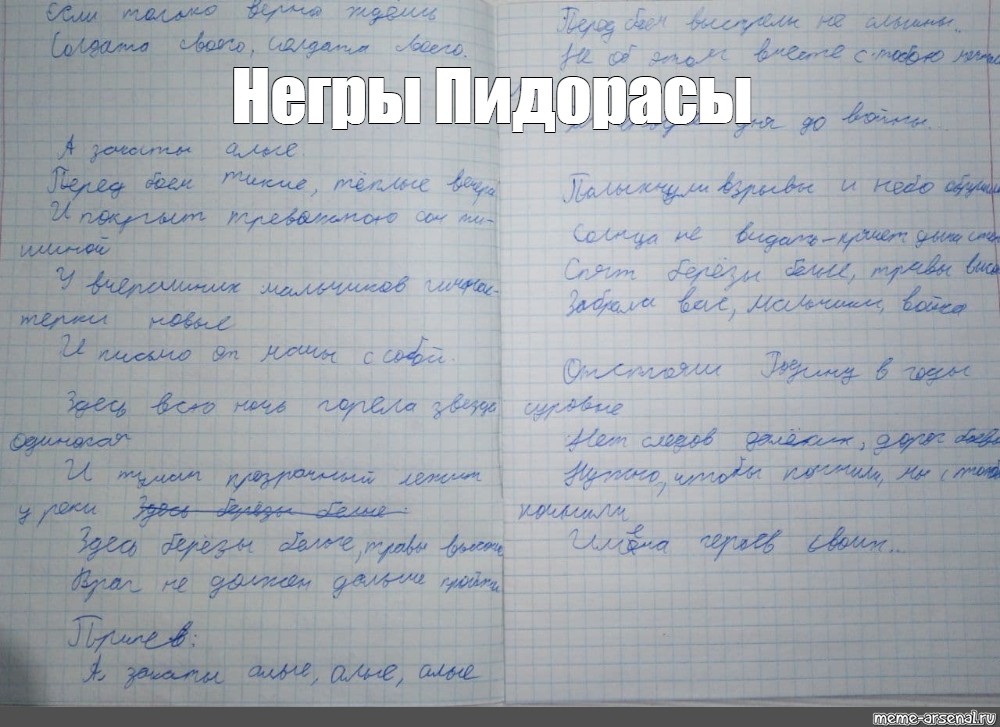 Если только верно ждёшь
Солдата своего, солдата своего.
Негры Пидорасы
А закаты алые.
Перед боем тихие, тёплые вечера
И покрыт тревожною сон ти-
шиной
У вчерашних мальчиков гимнас-
терки новые
И письмо от мамы с собой.
Здесь всю ночь горела звезда
одинокая
И туман прозрачный лежит
у реки Здесь берёзы белые
Здесь берёзы белые, травы высокие
Враг не должен дальше пройти
Припев:
А, закаты алые, алые, алые
Перед боем выстрелы не слышны..
Не об этом вместе с тобою мечтали
дня до войны...
Полыхнули взрывы и небо
Солнца не видать-
Спят берёзы белые, травы
Забрала вас, мальчики, война
Отстояли Родину в годы
суровые
Нет следов далёких, дорог
Нужно, чтобы помнили, мы с тобой
помнили
Имена героев своих..
meme-arsenal.ru